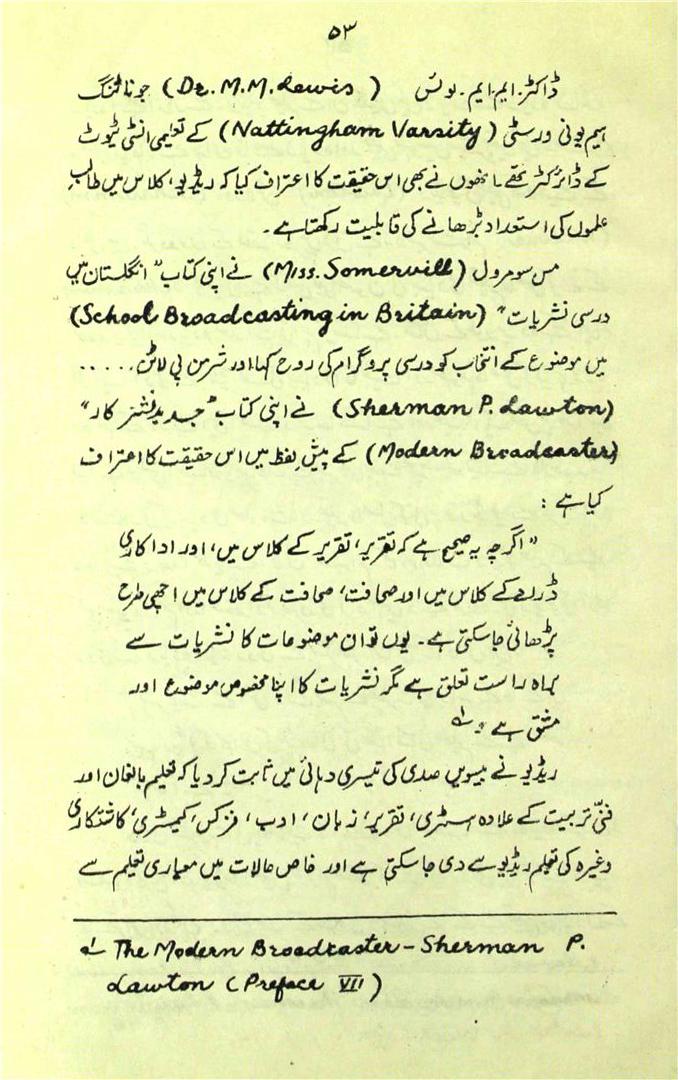 ۵۳
ڈاکٹر۔ ایم۔ ایم۔ لوئس (Dr. M.M. Lewis) جو ناٹنگ
ہیم یونی ورسٹی (Nattingham Varsity) کے تعلیمی انسٹی ٹیوٹ
کے ڈائرکٹر تھے۔ انھوں نے بھی اس حقیقت کا اعتراف کیا کہ ریڈیو، کلاس میں طالب
علموں کی استعداد بڑھانے کی قابلیت رکھتا ہے۔
مس سومرول (Miss. Somervill) نے اپنی کتاب "انگلستان میں
درسی نشریات" (School Broadcasting in Britain)
میں موضوع کے انتخاب کو درسی پروگرام کی روح کہا اور شرمن پی لاٹن.....
(Sherman P. Lawton) نے اپنی کتاب "جدید نشر کار"
(Modern Broadcaster) کے پیش لفظ میں اس حقیقت کا اعتراف
کیا ہے :
"اگرچہ یہ صحیح ہے کہ تقریر، تقریر کے کلاس میں، اور اداکاری
ڈرامے کے کلاس میں اور صحافت، صحافت کے کلاس میں اچھی طرح
پڑھائی جاسکتی ہے۔ یوں تو ان موضوعات کا نشریات سے
براہ راست تعلق ہے مگر نشریات کا اپنا مخصوص موضوع اور
مشق ہے۔" ۱؎
ریڈیو نے بیسویں صدی کی تیسری دہائی میں ثابت کر دیا کہ تعلیم بالغان اور
فنّی تربیت کے علاوہ ہسٹری، تقریر، زبان، ادب، فزکس، کیمسٹری، کاشتکاری
وغیرہ کی تعلیم ریڈیو سے دی جاسکتی ہے اور خاص حالات میں معیاری تعلیم سے
۱؎ The Modern Broadcaster – Sherman P.
Lawton (Preface VII)